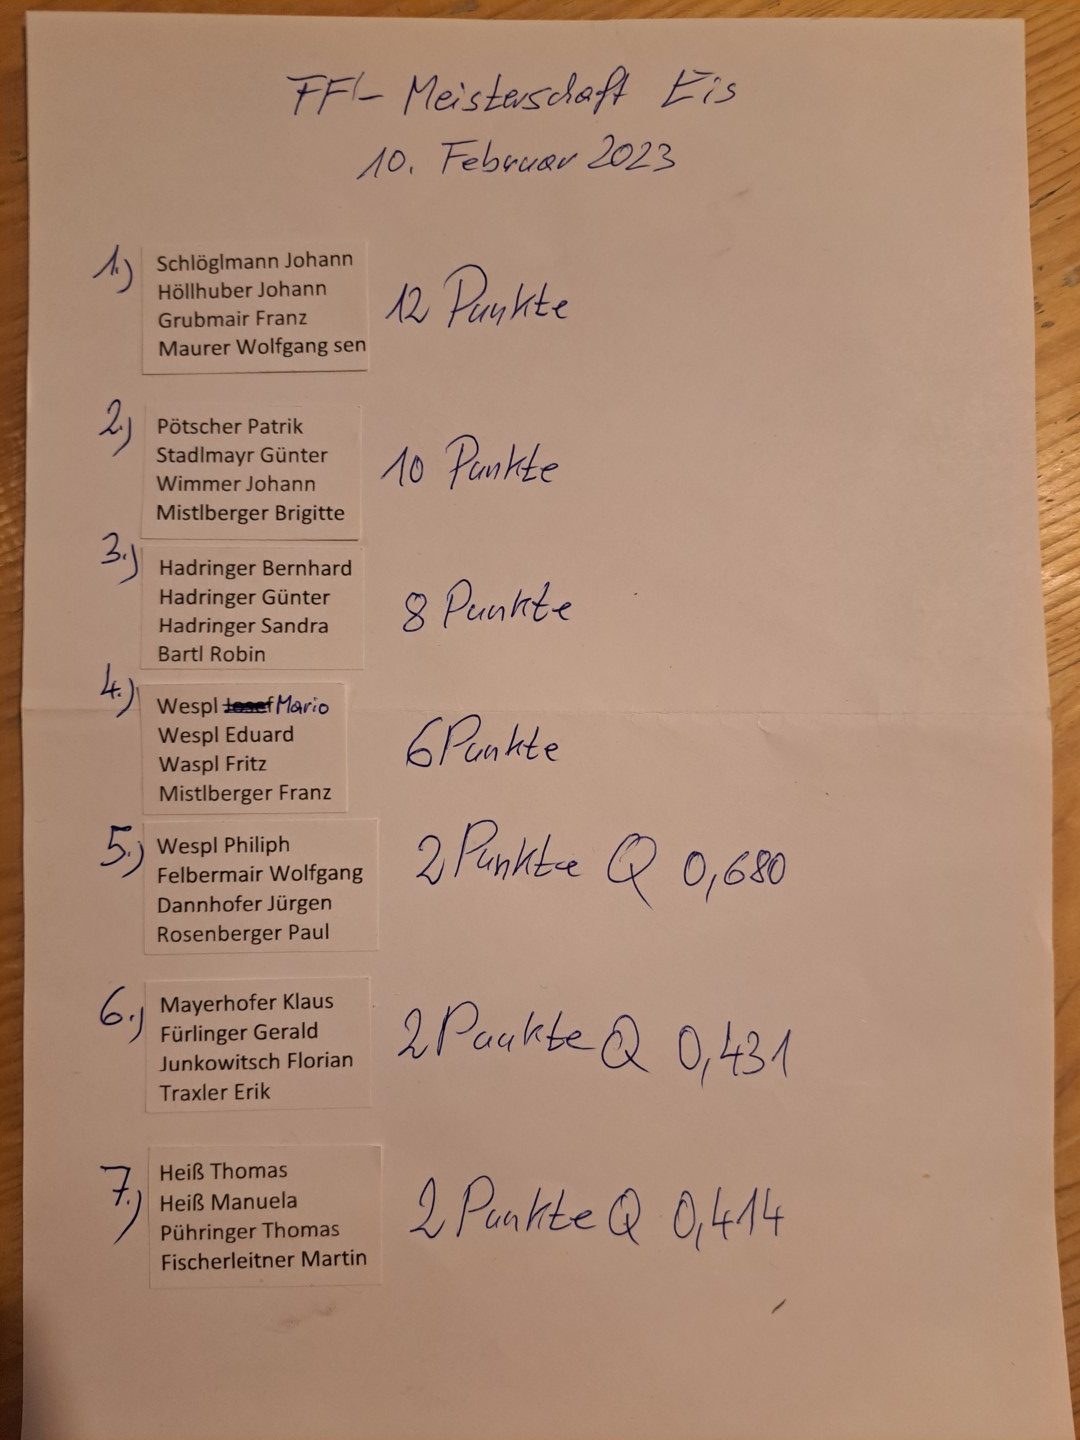 FF- Meisterschaft Eis
10. Februar 2023
1.)
Schlöglmann Johann
Höllhuber Johann
Grubmair Franz
Maurer Wolfgang sen
12 Punkte
2.)
Pötscher Patrik
Stadlmayr Günter
Wimmer Johann
Mistlberger Brigitte
10 Punkte
3.)
Hadringer Bernhard
Hadringer Günter
Hadringer Sandra
Bartl Robin
8 Punkte
4.)
Wespl Josef Mario
Wespl Eduard
Waspl Fritz
Mistlberger Franz
6 Punkte
5.)
Wespl Philiph
Felbermair Wolfgang
Dannhofer Jürgen
Rosenberger Paul
2 Punkte Q 0,680
6.)
Mayerhofer Klaus
Fürlinger Gerald
Junkowitsch Florian
Traxler Erik
2 Punkte Q 0,431
7.)
Heiß Thomas
Heiß Manuela
Pühringer Thomas
Fischerleitner Martin
2 Punkte Q 0,414